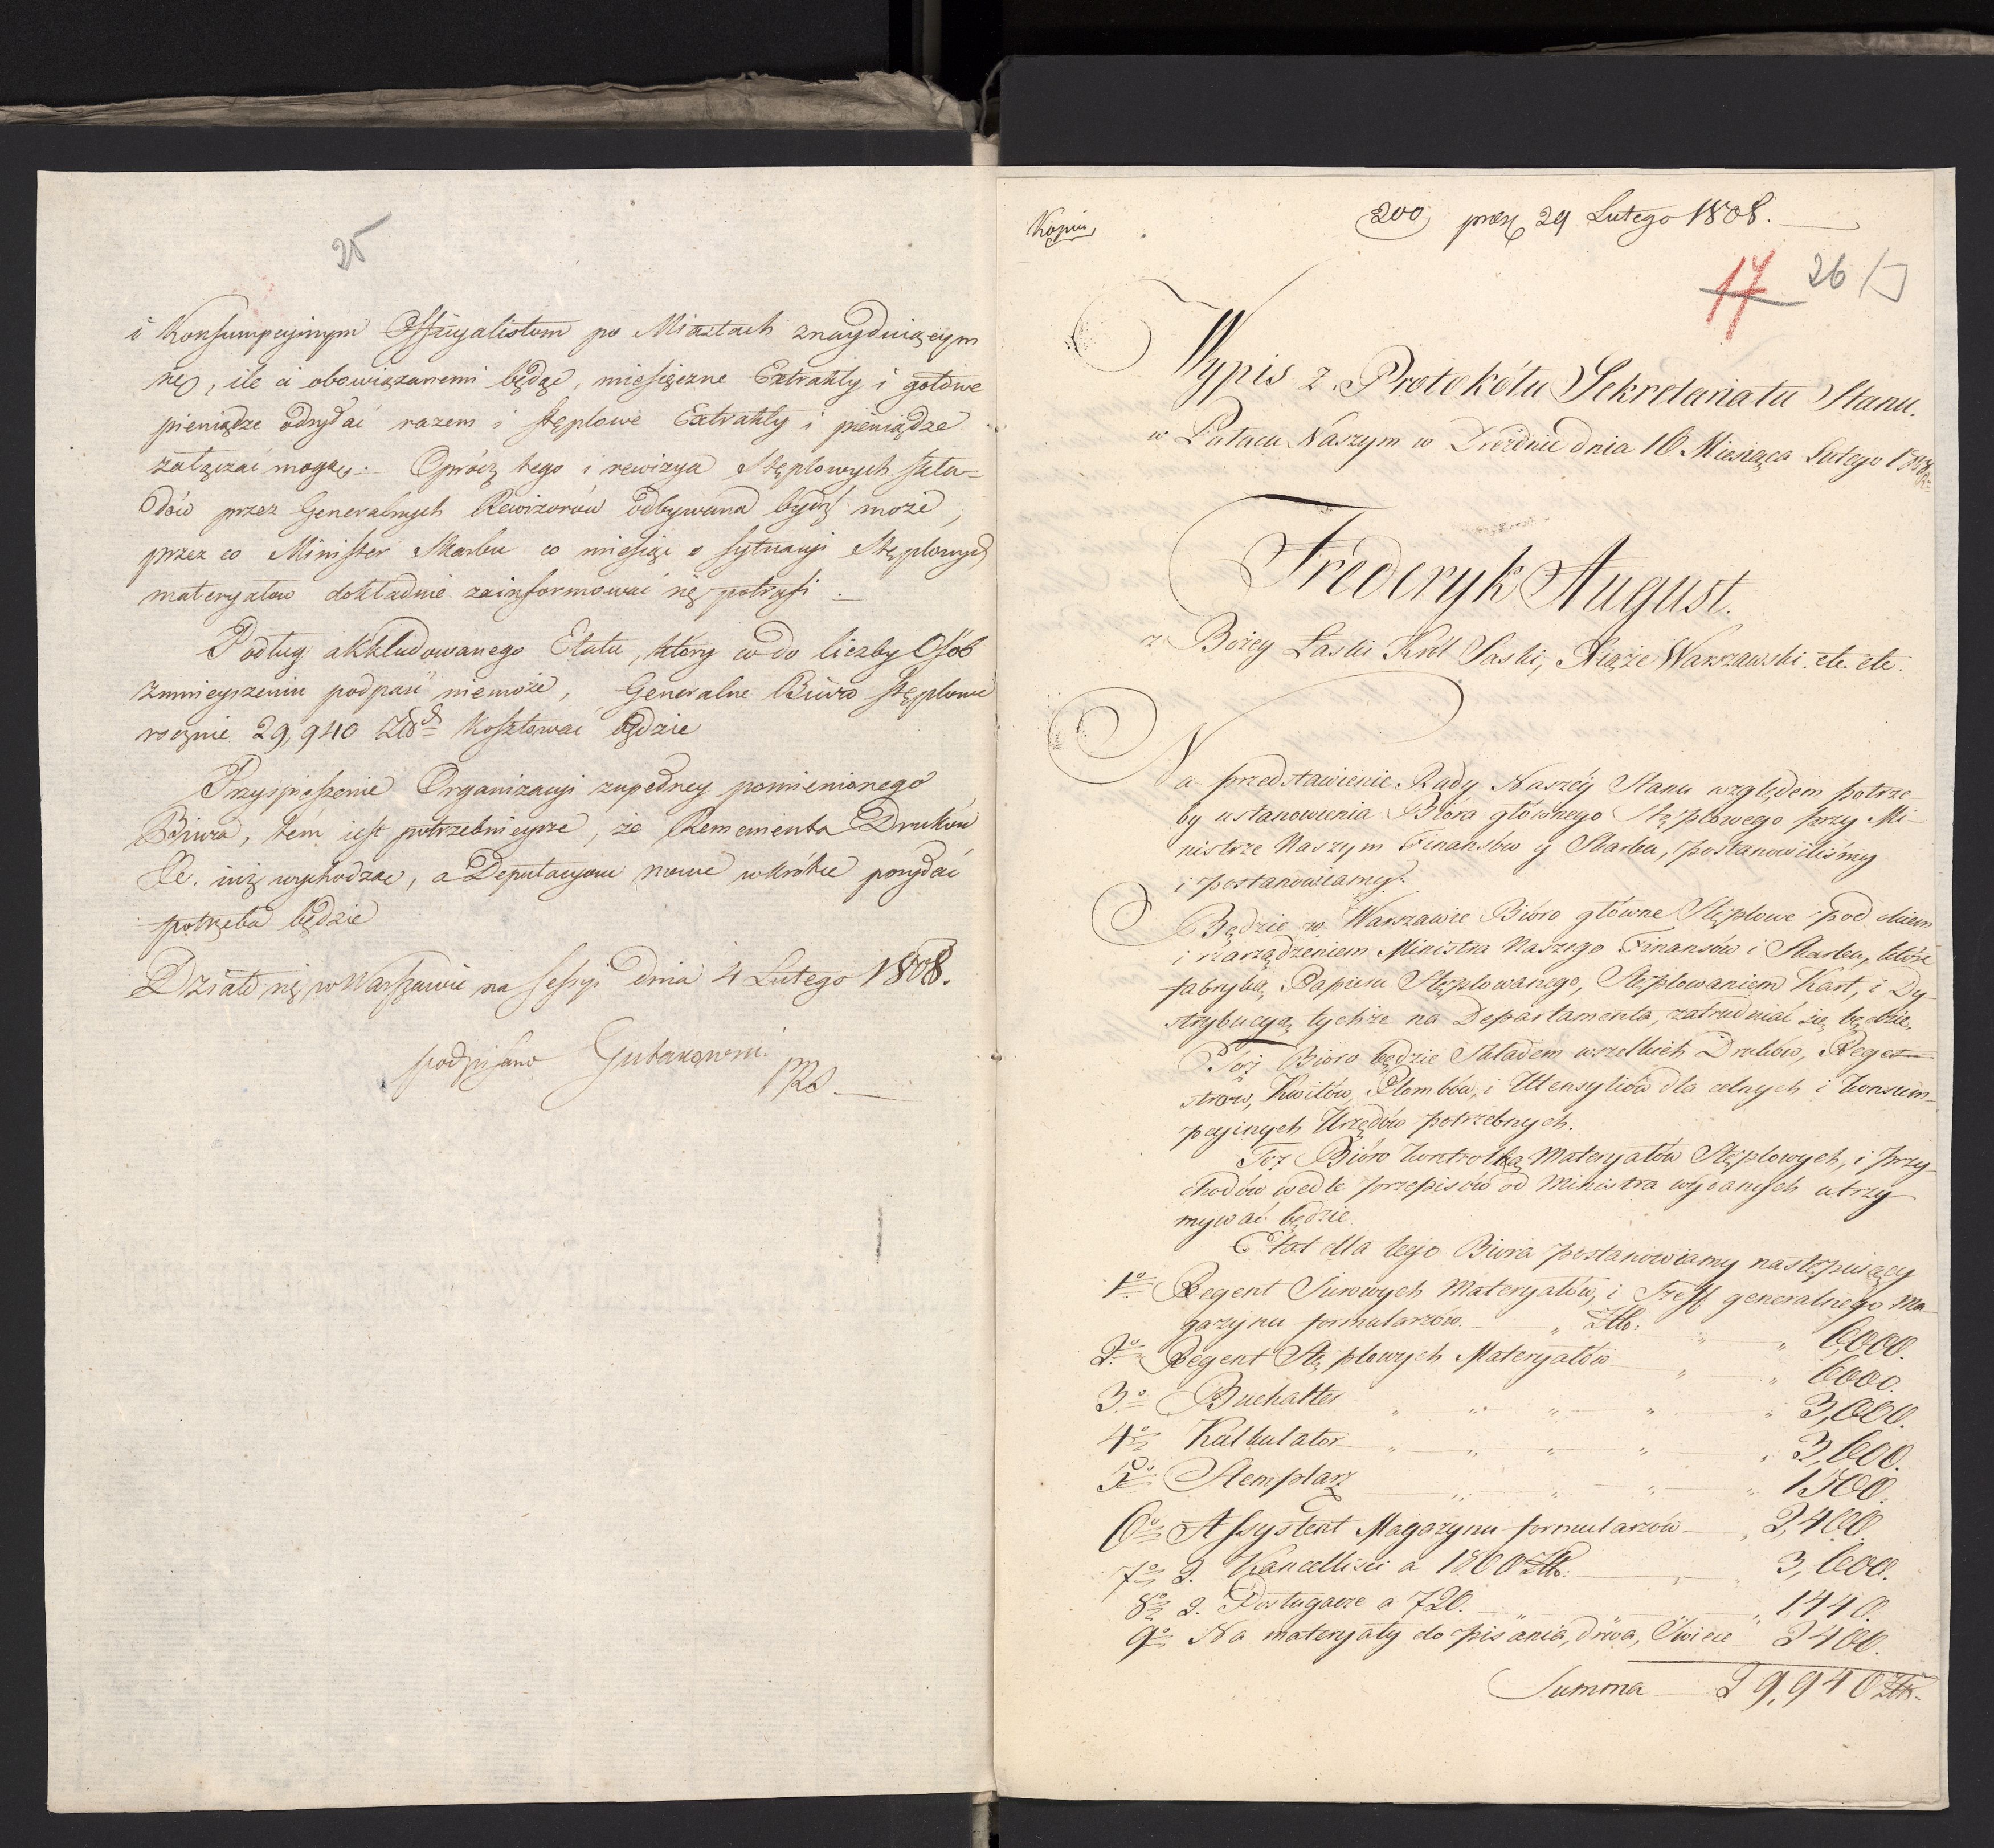 25
i Konsumpcyinym Officyalistom po Miastach znayduiącym
się, ile ci obowiązanemi będąc, miesięczne Extrakty i gotowe
pieniądze odsyłać razem i stęplowe Extrakty i pieniądze
załączać mogą. Oprócz tego i rewizya Stęplowych skła-
dów przez Generalnych Rewizorów odbywana bydź może,
przez co Minister Skarbu co miesiąc o sytuacyi Stęplowych
materyałów dokładnie zainformować się potrafi.
Podług akkludowanego Etatu, który co do liczby Osób
zmnieyszeniu podpaść niemoże, Generalne Biuro stęplowe
rocznie 29,940 Złł kosztować będzie
Przyspieszenie Organizacyi zupełney pomienionego
Biura, tem iest potrzebnieysze, że Remementa Druków
&c. iuż wychodzą, a Deputacyom nowe wkrótce posyłać
potrzeba będzie
Działo się w Warszawie na Sessyi dnia 4 Lutego 1808.
podpisano Gutakowski.
PRS
Kopia
200 prez 29 Lutego 1808.
17 26
Wypis z Protokółu Sekretariatu Stanu.
w Pałacu Naszym w Dreźdnie dnia 16 Miesiąca Lutego 1808 R:
Frederyk August.
z Bożey Łaski Król Saski, Xiąże Warszawski etc. etc.
Na przedstawienie Rady Naszey Stanu względem potrze-
by ustanowienia Bióra głównego Stęplowego przy Mi-
nistrze Naszym Finansów y Skarbu, postanowiliśmy
i postanowiamy:
Będzie w Warszawie Bióro główne Stęplowe pod okiem
i zarządzeniem Ministra Naszego Finansów i Skarbu, które
fabryką Papieru Stęplowanego, Stęplowaniem Kart, i Dy-
strybucyą tychże na Departamenta, zatrudniać się będzie.
Toż Bióro będzie Składem wszelkich Druków, Reges-
strów, Kwitów, Plombów, i Utensyliów dla celnych i konsum-
pcyinych Urzędów potrzebnych.
Toż Bióro kontrolką Materyałów Stęplowych, i przy-
chodów wedle przepisów od Ministra wydanych utrzy-
mywać będzie.
Etat dla tego Biura postanowiamy następuiący
1o Regent Surowych Materyałów, i Szeff generalnego Ma-
gazynu formularzów. " Złł: " " 6,000.
2o Regent Stęplowych Materyałów " " 6000.
3o Buchalter " " " " " 3,600.
4o Kalkulator " " " " " 3,600.
5o Stemplarz " " " " 1500.
6o Assystent Magazynu formularzów " 2,400.
7o 2. Kancellisci a 1800 Złł: " 3,600.
8o 2. Posługacze a 720. " " 1440.
9o Na materyały do pisania, drwa, Świece " 2400.
Summa 29,940 Złł.